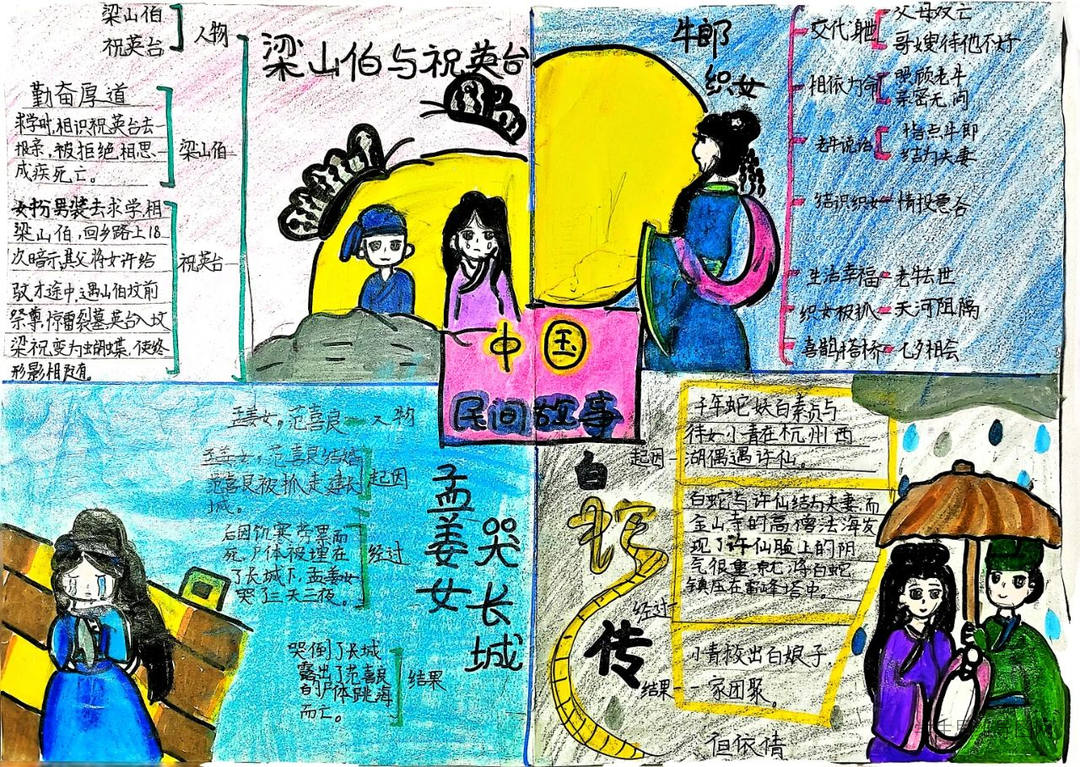 梁山伯
祝英台
人物
梁山伯与祝英台
勤奋厚道
求学时,相识祝英台去
报亲,被拒绝,相思
成疾死亡。
梁山伯
女扮男装去求学相
梁山伯,回乡路上18
次暗示其父将女许给
马文才途中遇山伯坟前
祭奠,惊雷裂墓,英台入坟
梁祝变为蝴蝶,使终
形影相随
祝英台
牛郎
织女
父母双亡
哥嫂待他不好
相依为命
照顾老牛
亲密无间
老牛说话
指点牛郎
结为夫妻
结识织女
情投意合
生活幸福
老牛去世
织女被抓
天河阻隔
喜鹊搭桥
七夕相会
中国
民间故事
孟姜女,范喜良
人物
孟姜女,范喜良结婚
范喜良被抓走建长
城。
起因
后因饥寒劳累而
死,尸体被埋在
了长城下,孟姜女
哭了三天三夜。
经过
哭倒了长城
露出了范喜良
的尸体跳海
而亡。
结果
孟姜女
哭长城
白蛇传
起因
千年蛇妖白素贞与
侍女小青在杭州西
湖偶遇许仙。
经过
白蛇与许仙结为夫妻,而
金山寺的高僧法海发
现了许仙脸上的阴
气很重,就将白蛇
镇压在雷峰塔中
小青救出白娘子,
结果
一家团聚。
但依倩